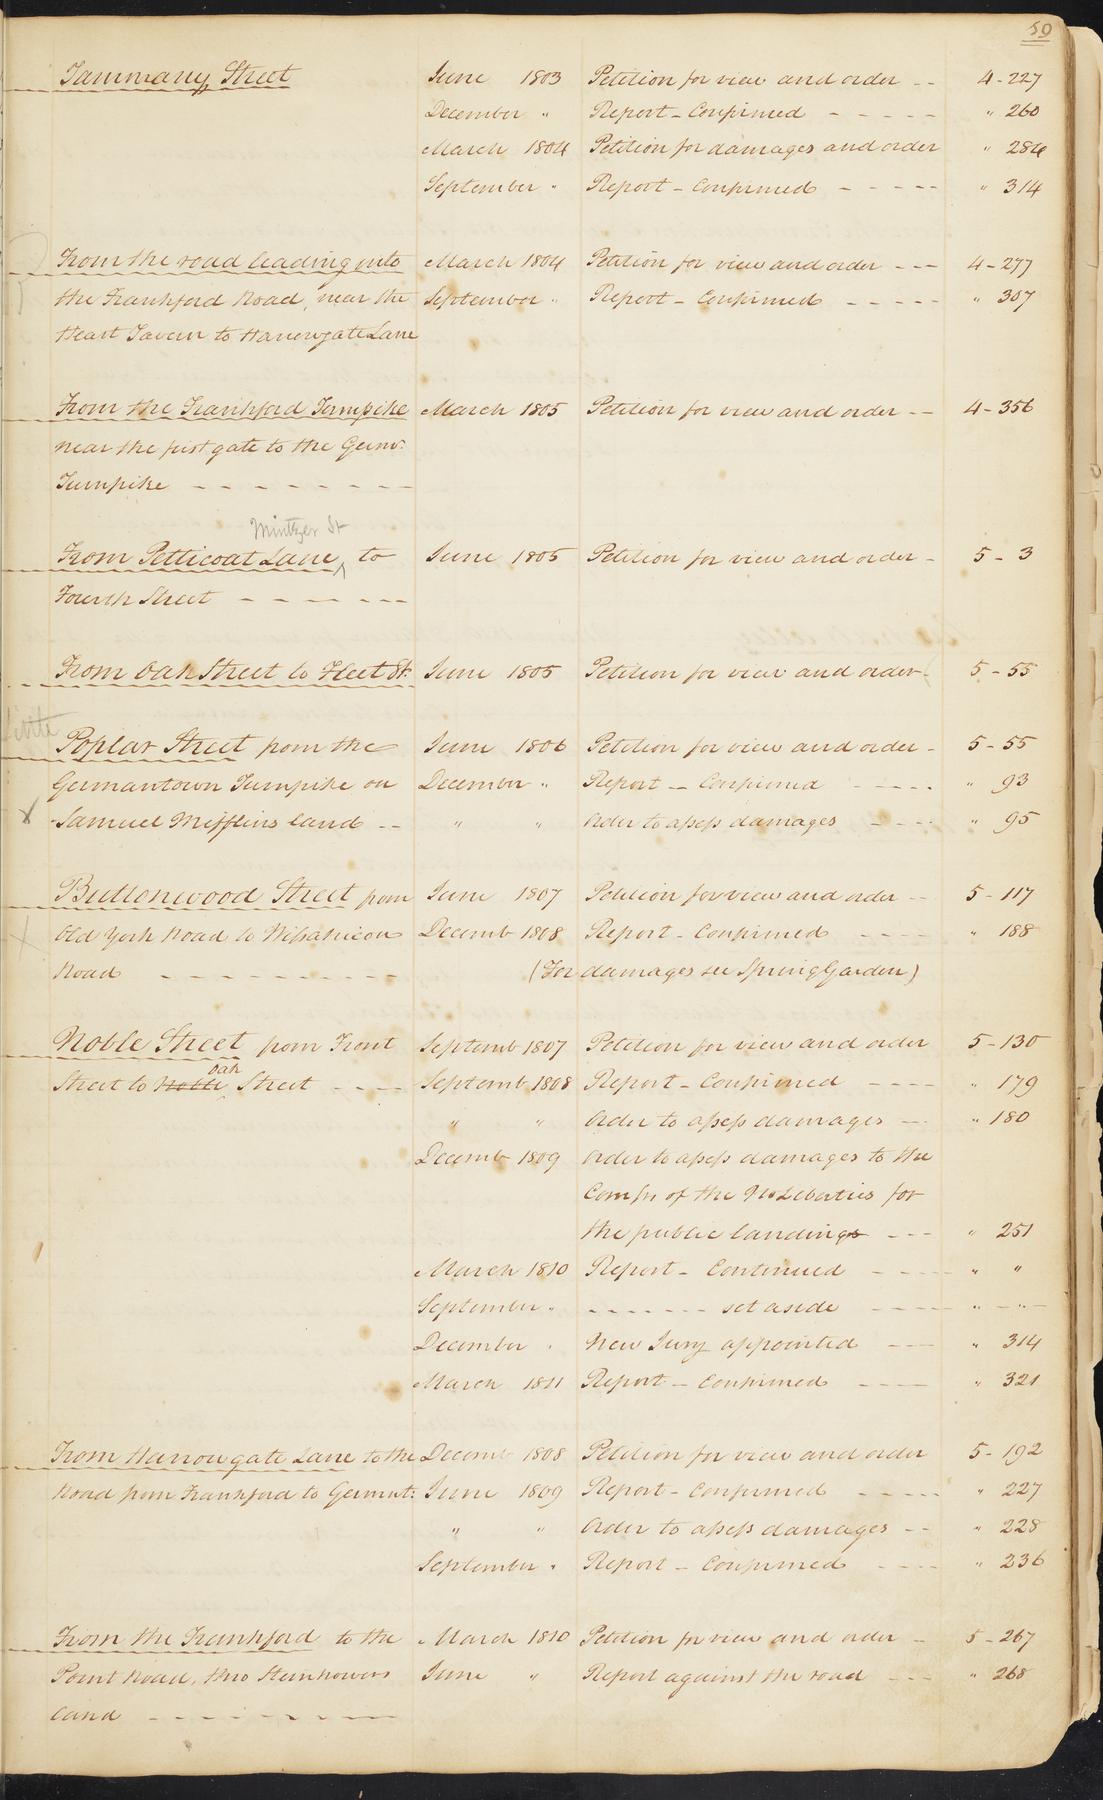 59
Tammany Street June 1803 Petition for view and order -- 4-227
December " Report - Confirmed - - - - - " 260
March 1804 Petition for damages and order " 284
September " Report - Confirmed - - - - - " 314
From the road leading into March 1804 Petition for view and order --- 4-277
the Frankford Road, near the September " Report - Confirmed - - - - - " 307
Heart Tavern to Harrowgate Lane
From the Frankford Turnpike March 1805 Petition for view and order -- 4-356
near the first gate to the Germ:
Turnpike - - - - - - - -
Mintzer St
From Petticoat Lane, ^ to June 1805 Petition for view and order - 5-3
Fourth Street - - - - - - -
From Oak Street to Fleet St. June 1805 Petition for view and order - 5-55
Poplar Street from the June 1806 Petition for view and order - 5-55
Germantown Turnpike on December " Report - Confirmed - - - - - " 93
x Samuel Mifflins land -- " " Order to assess damages - - - - " 95
Buttonwood Street from June 1807 Petition for view and order -- 5-117
x Old York Road to Wissahicon Decemb 1808 Report - Confirmed - - - - " 188
Road - - - - - - - - - - (For damages see Spring Garden)
Noble Street from Front Septemb 1807 Petition for view and order 5-130
oak
Street to Noble Street - - - - Septemb 1808 Report - Confirmed - - - - " 179
" " Order to assess damages --- " 180
Decemb 1809 Order to assess damages to the
Comrs of the No Liberties for
the public landings --- " 251
March 1810 Report - Continued - - - - " "
September " - - - - - - - set aside - - - - - " - " -
December " New Jury appointed --- " 314
March 1811 Report - Confirmed - - - - " 321
From Harrowgate Lane to the Decemb 1808 Petition for view and order 5-192
Road from Frankford to Germnt: June 1809 Report - Confirmed - - - - - " 227
" " Order to assess damages -- " 228
September " Report - Confirmed - - - - " 236
From the Frankford to the March 1810 Petition for view and order - 5-267
Point Road, thro Steinhowers June " Report against the road --- " 268
Land - - - - - - - - -